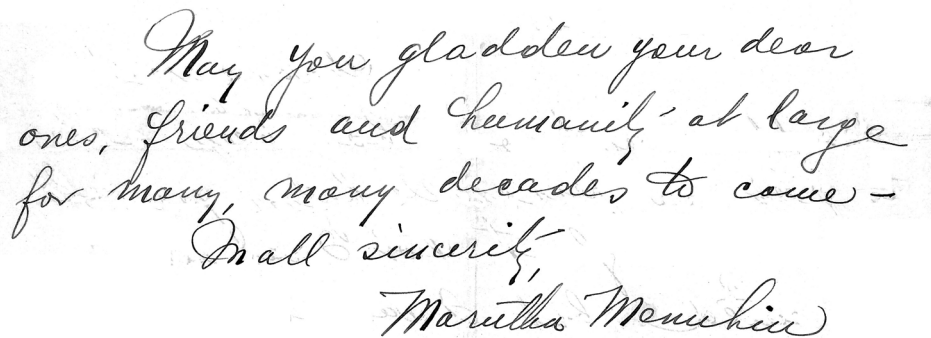 May you gladden your dear
ones, friends and humanity at large
for many, many decades to come —
In all sincerity,
Marutha Menuhin